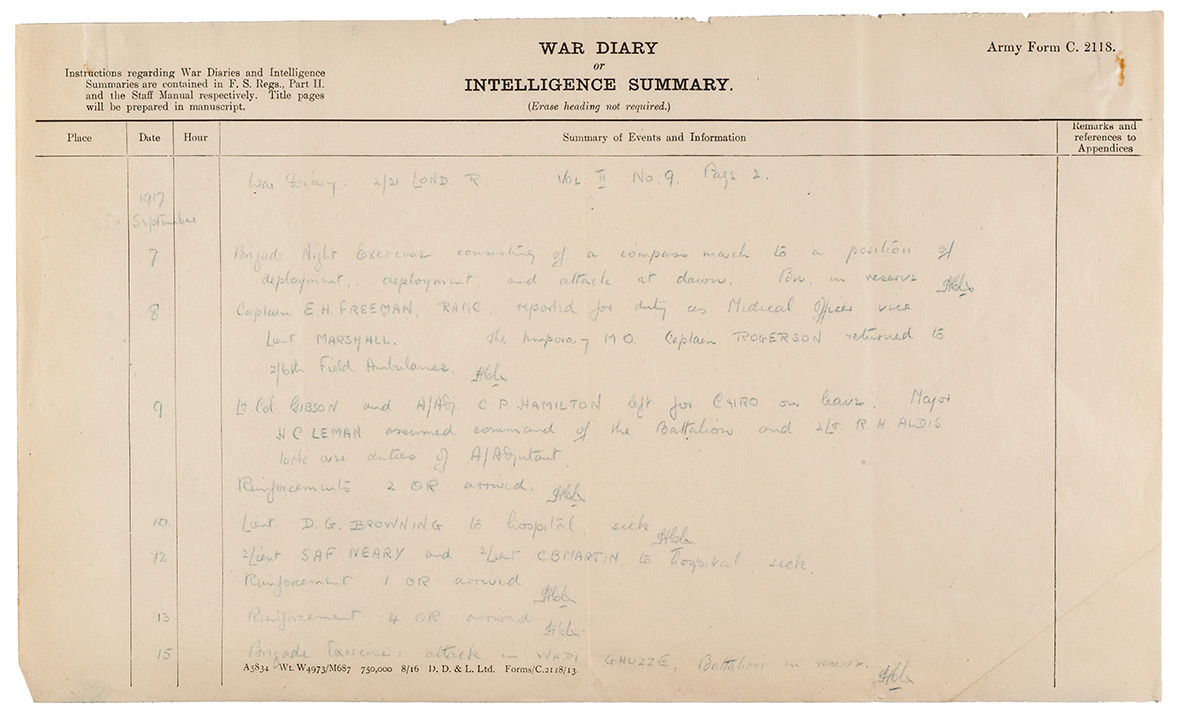 WAR DIARY
or
INTELLIGENCE SUMMARY.
(Erase heading not required.)
Army Form C. 2118.
Instructions regarding War Diaries and Intelligence
Summaries are contained in F. S. Regs., Part II.
and the Staff Manual respectively. Title pages
will be prepared in manuscript.
Place Date Hour Summary of Events and Information Remarks and references to Appendices
War Diary. 2/21 LOND. R. Vol II No. 9. Page 2.
1917
September
7 Brigade Night Exercise consisting of a compass march to a position of
deployment, deployment, and attack at dawn. Bn. in reserve.
8 Captain E.H. FREEMAN, RAMC. reported for duty as Medical Officer vice
Lieut MARSHALL. The temporary M.O. Captain ROGERSON returned to
2/6th Field Ambulance.
9 Lt. Col. GIBSON and A/Adj. C.P. HAMILTON left for CAIRO on leave. Major
H.C. LEMAN assumed command of the Battalion and 2/Lt. R.H. ALDIS
took over duties of A/Adjutant.
Reinforcements 2 OR arrived.
10. Lieut. D.G. BROWNING to hospital, sick
12 2/Lieut SAF NEARY and 2/Lieut C B MARTIN to hospital sick.
Reinforcement 1 OR arrived
13 Reinforcement 4 OR arrived
15 Brigade Exercise: attack in WADI GHUZZE, Battalion in reserve.
A5834 Wt. W4973/M687 750,000 8/16 D. D. & L. Ltd. Forms/C.2118/13.